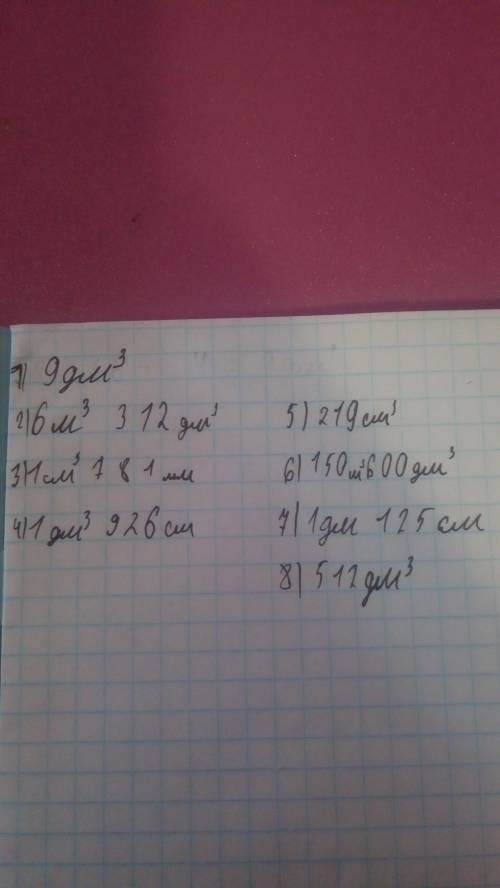 1) 9 дм³
2) 6 м³ 312 дм³
3) 1 см³ 781 мм
4) 1 дм³ 926 см
5) 219 см³
6) 150 м³ 600 дм³
7) 1 дм 125 см
8) 512 дм³